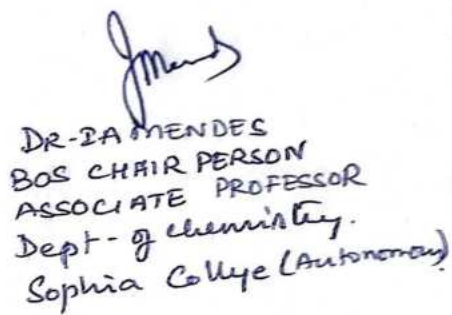 DR-IA MENDES
BOS CHAIR PERSON
ASSOCIATE PROFESSOR
Dept- of chemistry.
Sophia College (Autonomous)